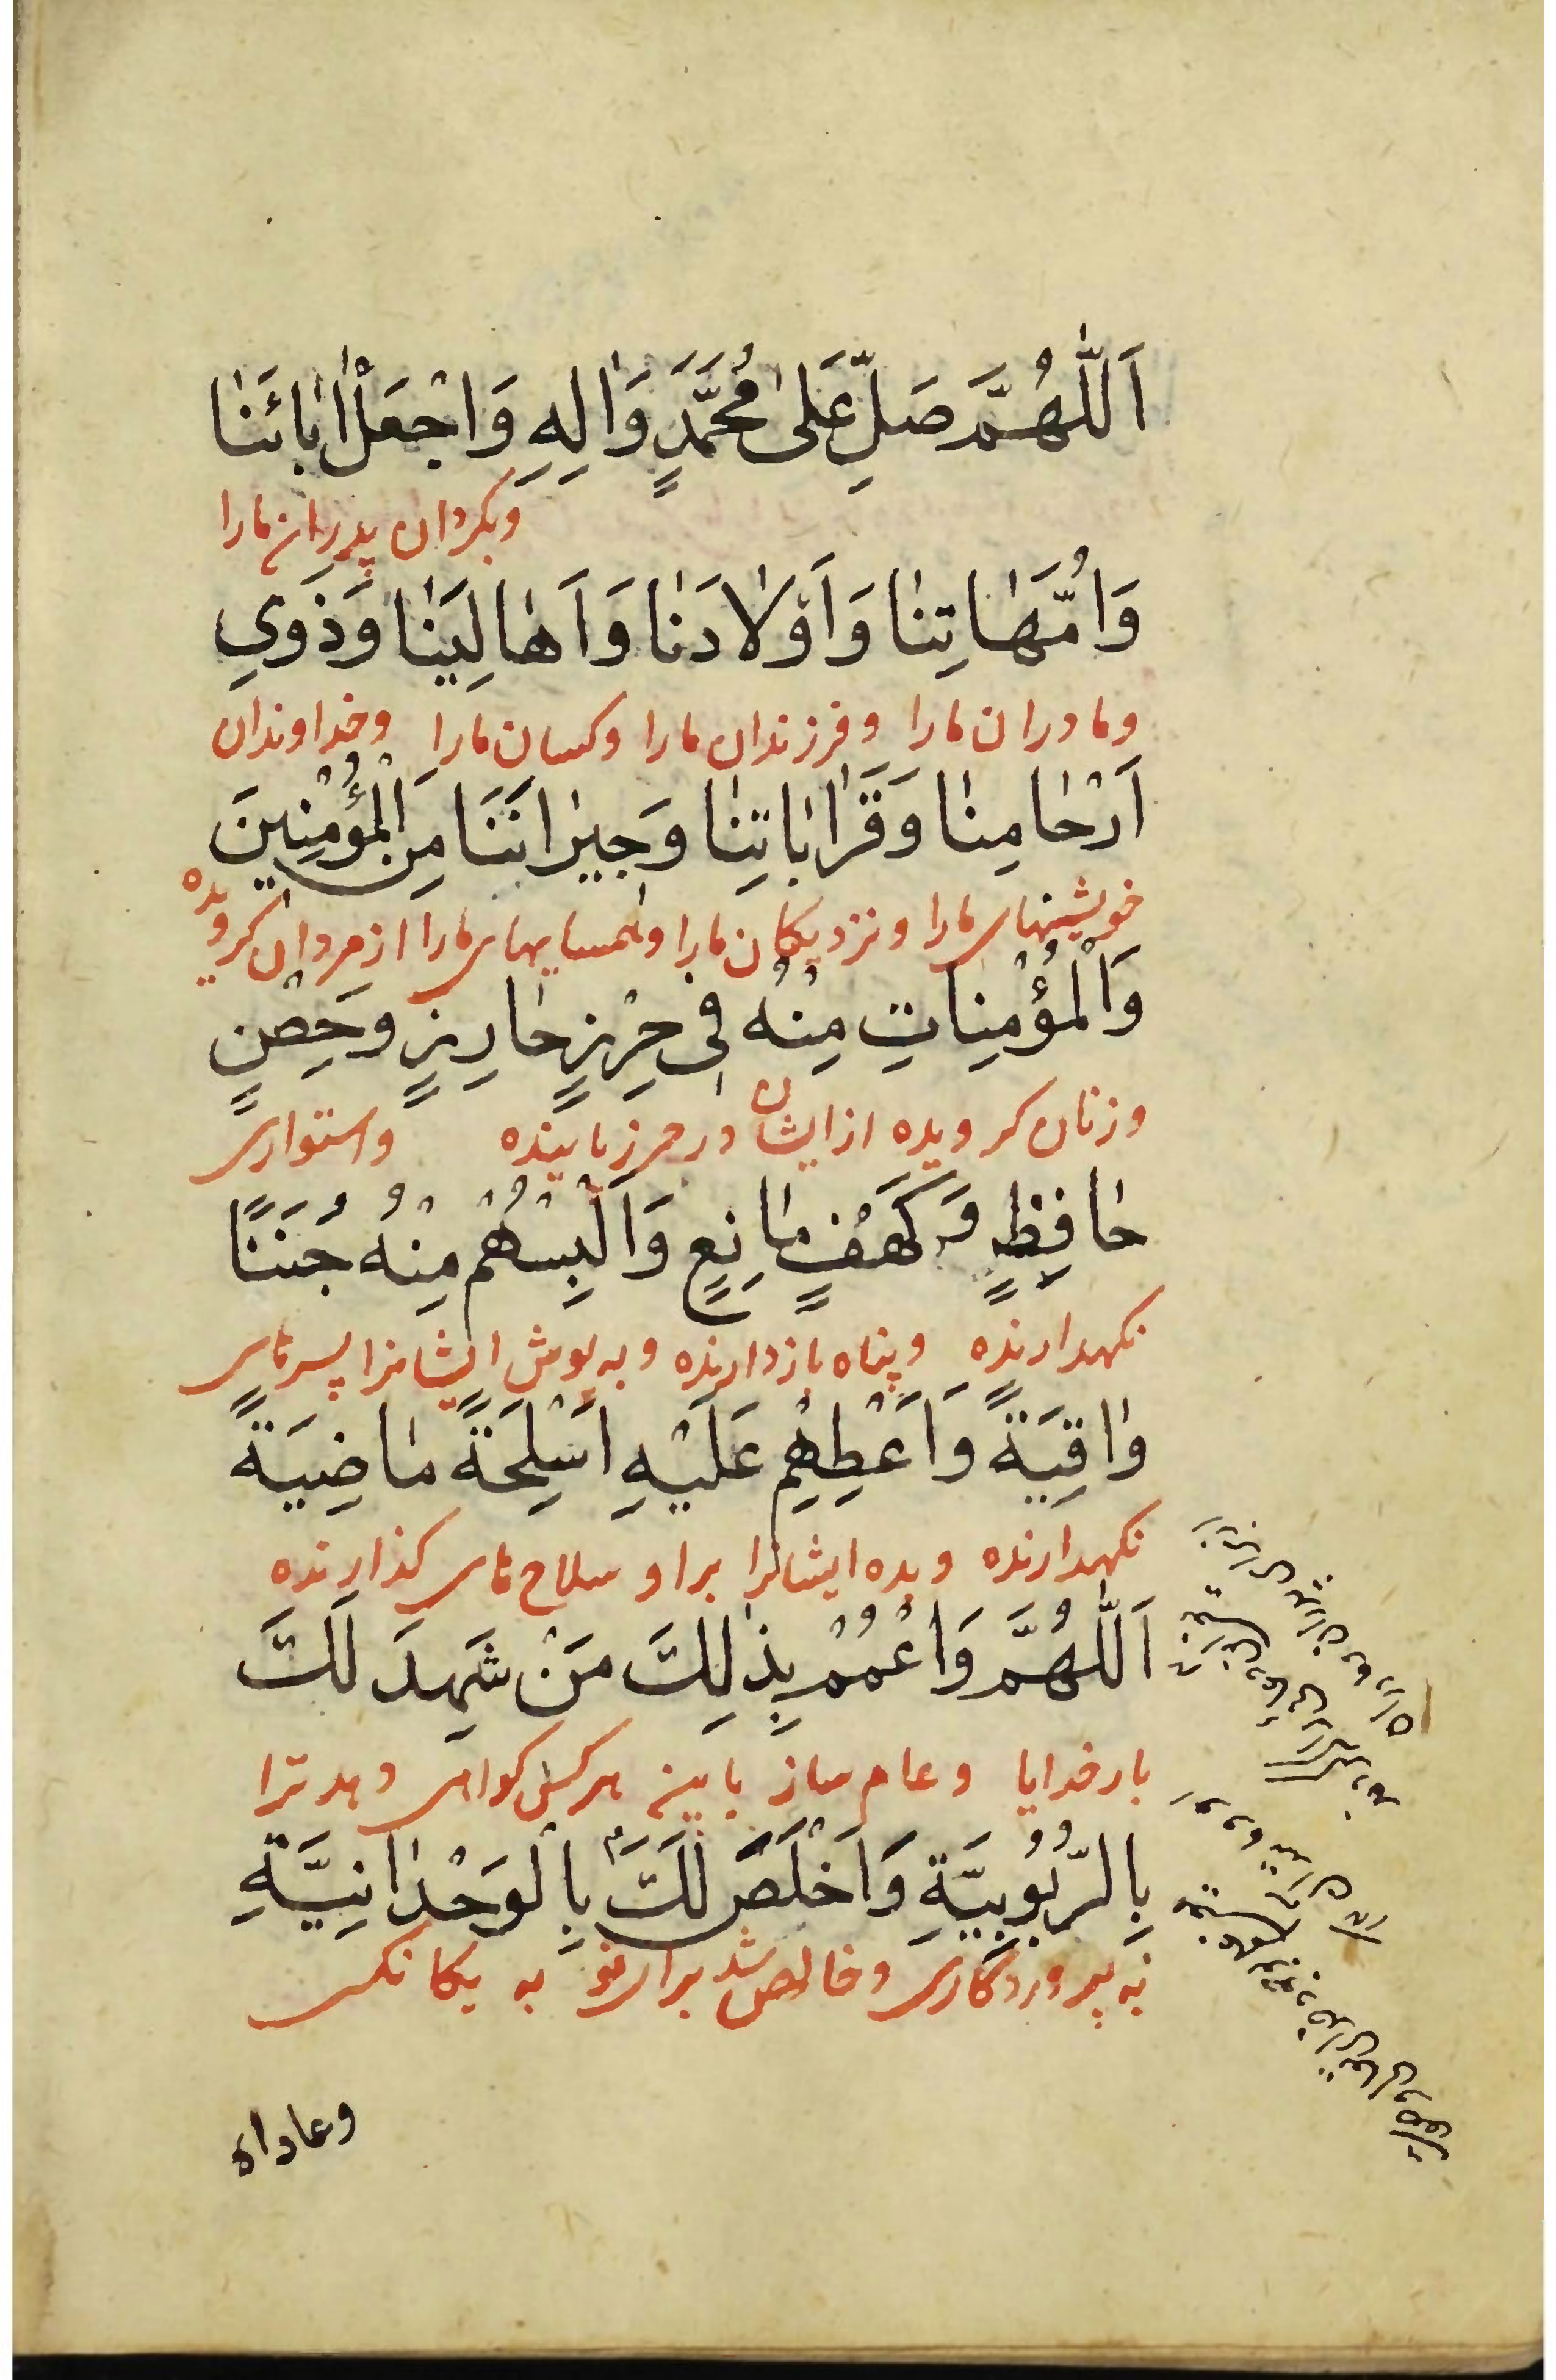 اَللّٰهُمَّ صَلِّ عَلىٰ مُحَمَّدٍ وَاٰلِهِ وَاجْعَلْ اٰبٰائَنٰا
وبکردان پدران مارا
وَاُمَّهٰاتِنٰا وَاَوْلٰادَنٰا وَاَهٰالِيَنٰا وَذَوِي
ومادران مارا وفرزندان مارا وکسان مارا وخداوندان
اَرْحٰامِنٰا وَقَرٰابٰاتِنٰا وَجِيرٰانَنَا مِنَ الْمُؤْمِنِينَ
خویشیهای مارا ونزدیکان مارا وهمسایهای مارا از مردان کرویده
وَالْمُؤْمِنٰاتِ مِنْهُ فِى حِرْزٍ حٰارِزٍ وَحِصْنٍ
وزنان کرویده از ایشان در حرز پاینده واستواری
حٰافِظٍ وَكَهْفٍ مٰانِعٍ وَاَلْبِسْهُمْ مِنْهُ جُنَنًا
نکهدارنده وپناه بازدارنده وبه پوش ایشانرا سپرهای
وٰاقِيَةً وَاَعْطِهِمْ عَلَيْهِ اَسْلِحَةً مٰاضِيَةً
نکهدارنده وبده ایشانرا براو سلاح های کذارنده
اَللّٰهُمَّ وَاعْمُمْ بِذٰلِكَ مَنْ شَهِدَ لَكَ
بارخدایا وعام ساز باین هرکس کواهی دهد ترا
بِالرُّبُوبِيَّةِ وَاَخْلَصَ لَكَ بِالْوَحْدٰانِيَّةِ
به پروردکاری وخالص شد برای تو به یکانکی
وعاداه